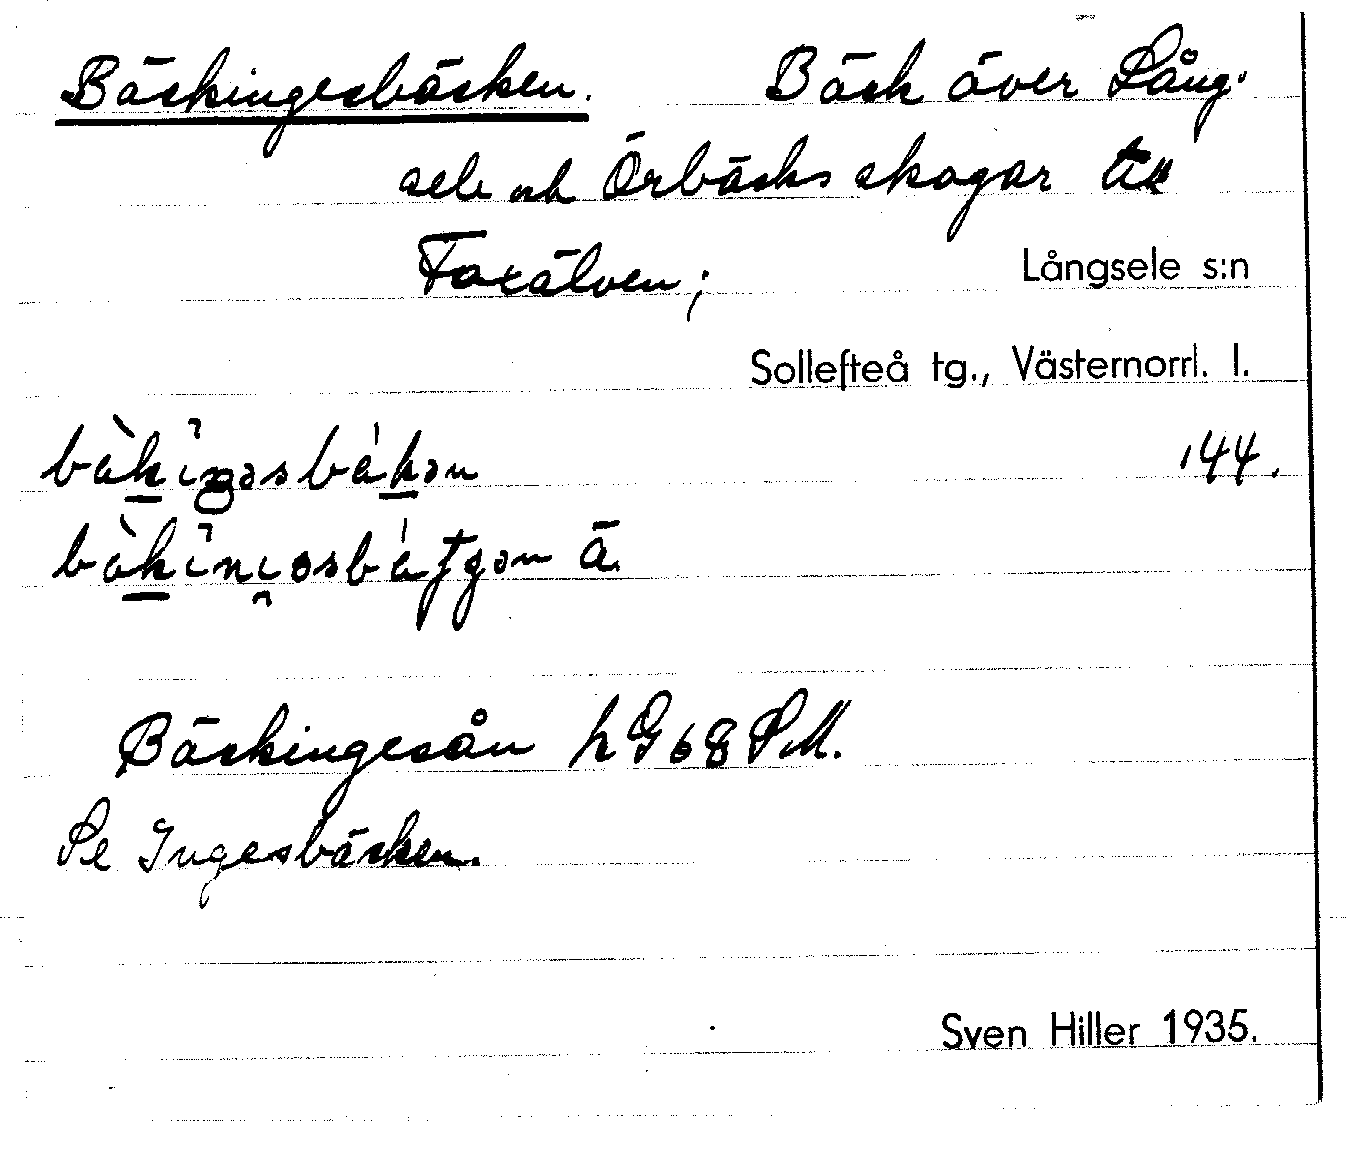 Bäckingesbäcken. Bäck över Lång-
sele och Örbäcks skogar till
Faxälven;
Långsele s:n
Sollefteå tg., Västernorrl. l.
144.
ä.
Bäckingesån h G 68 SM.
Se Ingesbäcken.
Sven Hiller 1935.